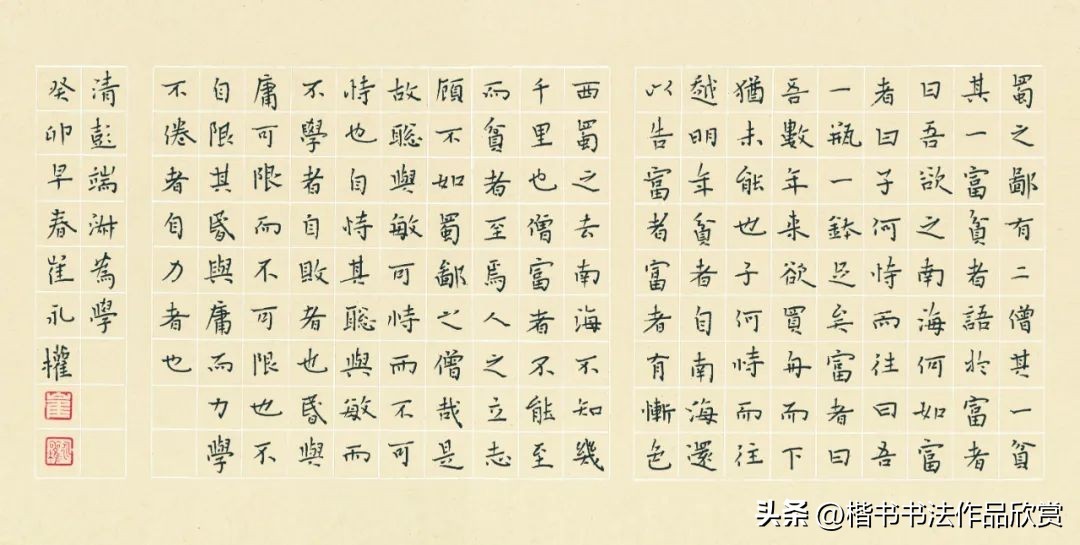 蜀之鄙有二僧其一貧
其一富貧者語於富者
曰吾欲之南海何如富
者曰子何恃而往曰吾
一瓶一鉢足矣富者曰
吾數年來欲買舟而下
猶未能也子何恃而往
越明年貧者自南海還
以告富者富者有慚色
西蜀之去南海不知幾
千里也僧富者不能至
而貧者至焉人之立志
顧不如蜀鄙之僧哉是
故聰與敏可恃而不可
恃也自恃其聰與敏而
不學者自敗者也昏與
庸可限而不可限也不
自限其昏與庸而力學
不倦者自力者也
清彭端淑為學
癸卯早春崔永權
崔
头条 @楷书书法作品欣赏